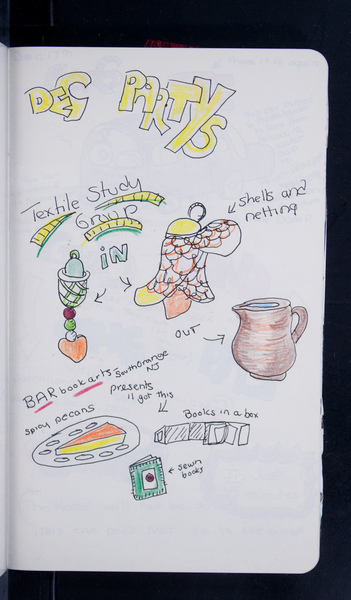 DEC PARTYS
Textile Study
Group
shells and
netting
IN
OUT
BAR bookarts
South Orange
NJ
presents
I got this
spicy pecans
Books in a box
sewn
books